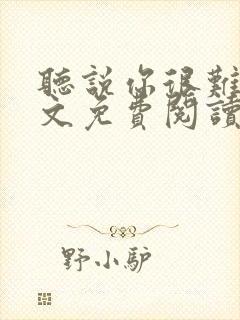 聽説你很難
文免費閱讀
野小驴